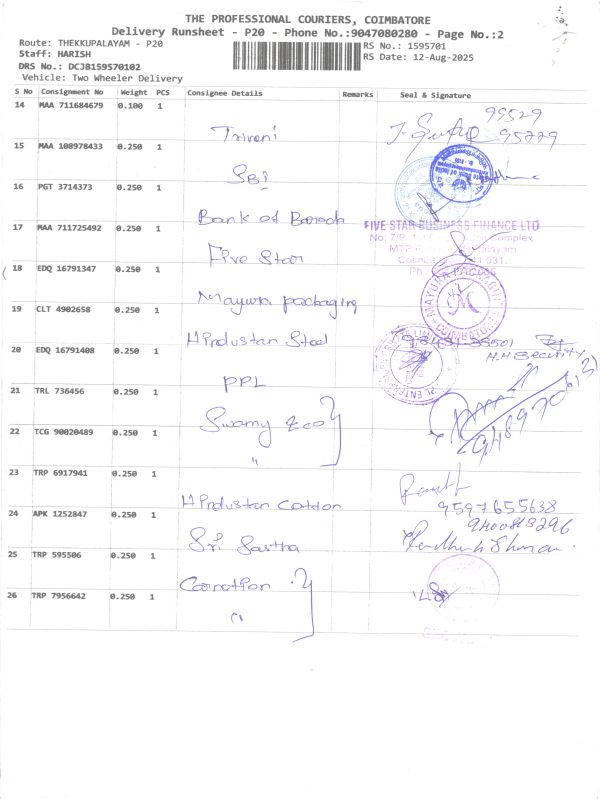 THE PROFESSIONAL COURIERS, COIMBATORE
Delivery Runsheet - P20 - Phone No.:9047080280 - Page No.:2
Route: THEKKUPALAYAM - P20
RS No.: 1595701
Staff: HARISH
RS Date: 12-Aug-2025
DRS No.: DCJB159570102
Vehicle: Two Wheeler Delivery
S No Consignment No Weight PCS Consignee Details Remarks Seal & Signature
14 MAA 711684679 0.100 1
Triveni
99529
95779
15 MAA 108978433 0.250 1
SBI
16 PGT 3714373 0.250 1
Bank of Baroda
17 MAA 711725492 0.250 1
Five Star
FIVE STAR BUSINESS FINANCE LTD
18 EDQ 16791347 0.250 1
Mayura packaging
19 CLT 4902658 0.250 1
Hindustan Steel
20 EDQ 16791408 0.250 1
PPL
H.H Security
21 TRL 736456 0.250 1
Swamy Eco
22 TCG 90020489 0.250 1
"
23 TRP 6917941 0.250 1
Hindustan Cotton
9597655638
24 APK 1252847 0.250 1
Sri Sastha
25 TRP 595506 0.250 1
26 TRP 7956642 0.250 1
"